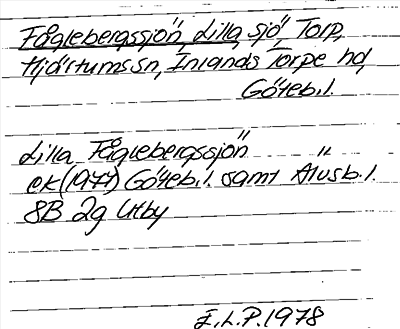 Fåglebergssjön, Lilla, sjö, Torp,
Hjärtums sn, Inlands Torpe hd,
Göteb. l.
Lilla Fåglebergssjön "
ek (1977) Göteb. l. samt Älvsb. l.
8B 2g Utby
E.L.P. 1978